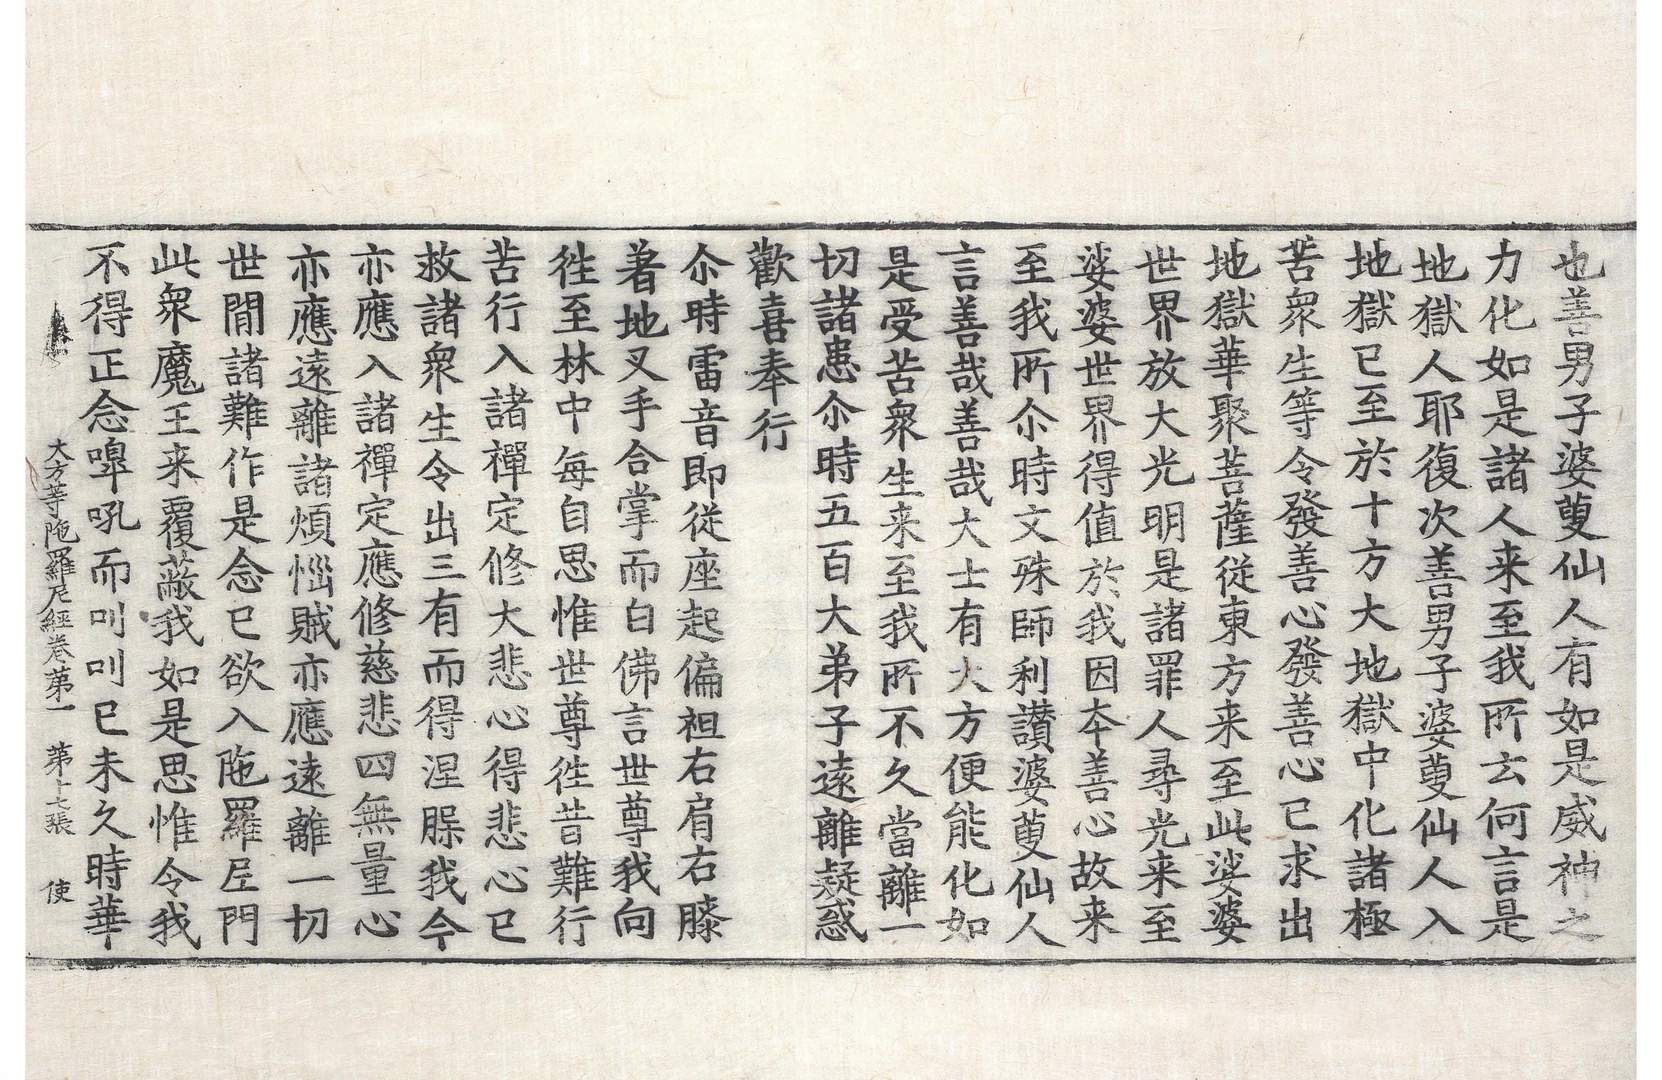 也善男子婆藪仙人有如是威神之
力化如是諸人来至我所云何言是
地獄人耶復次善男子婆藪仙人入
地獄已至於十方大地獄中化諸極
苦衆生等令發善心發善心已求出
地獄華聚菩薩従東方来至此娑婆
世界放大光明是諸罪人尋光来至
娑婆世界得值於我因夲善心故来
至我所尒時文殊師利讃婆藪仙人
言善哉善哉大士有大方便能化如
是受苦衆生来至我所不久當離一
切諸患尒時五百大弟子遠離疑惑
歡喜奉行
尒時雷音即従座起偏袒右肩右膝
著地叉手合掌而白佛言世尊我向
徃至林中每自思惟世尊徃昔難行
苦行入諸禪定修大悲心得悲心已
救諸衆生令出三有而得涅槃我今
亦應入諸禪定應修慈悲四無量心
亦應遠離諸煩惱賊亦應遠離一切
世間諸難作是念已欲入陁羅尼門
此衆魔王来覆蔽我如是思惟令我
不得正念嘷吼而叫叫已未久時華
大方等陁羅尼經卷第一 第十七張 使